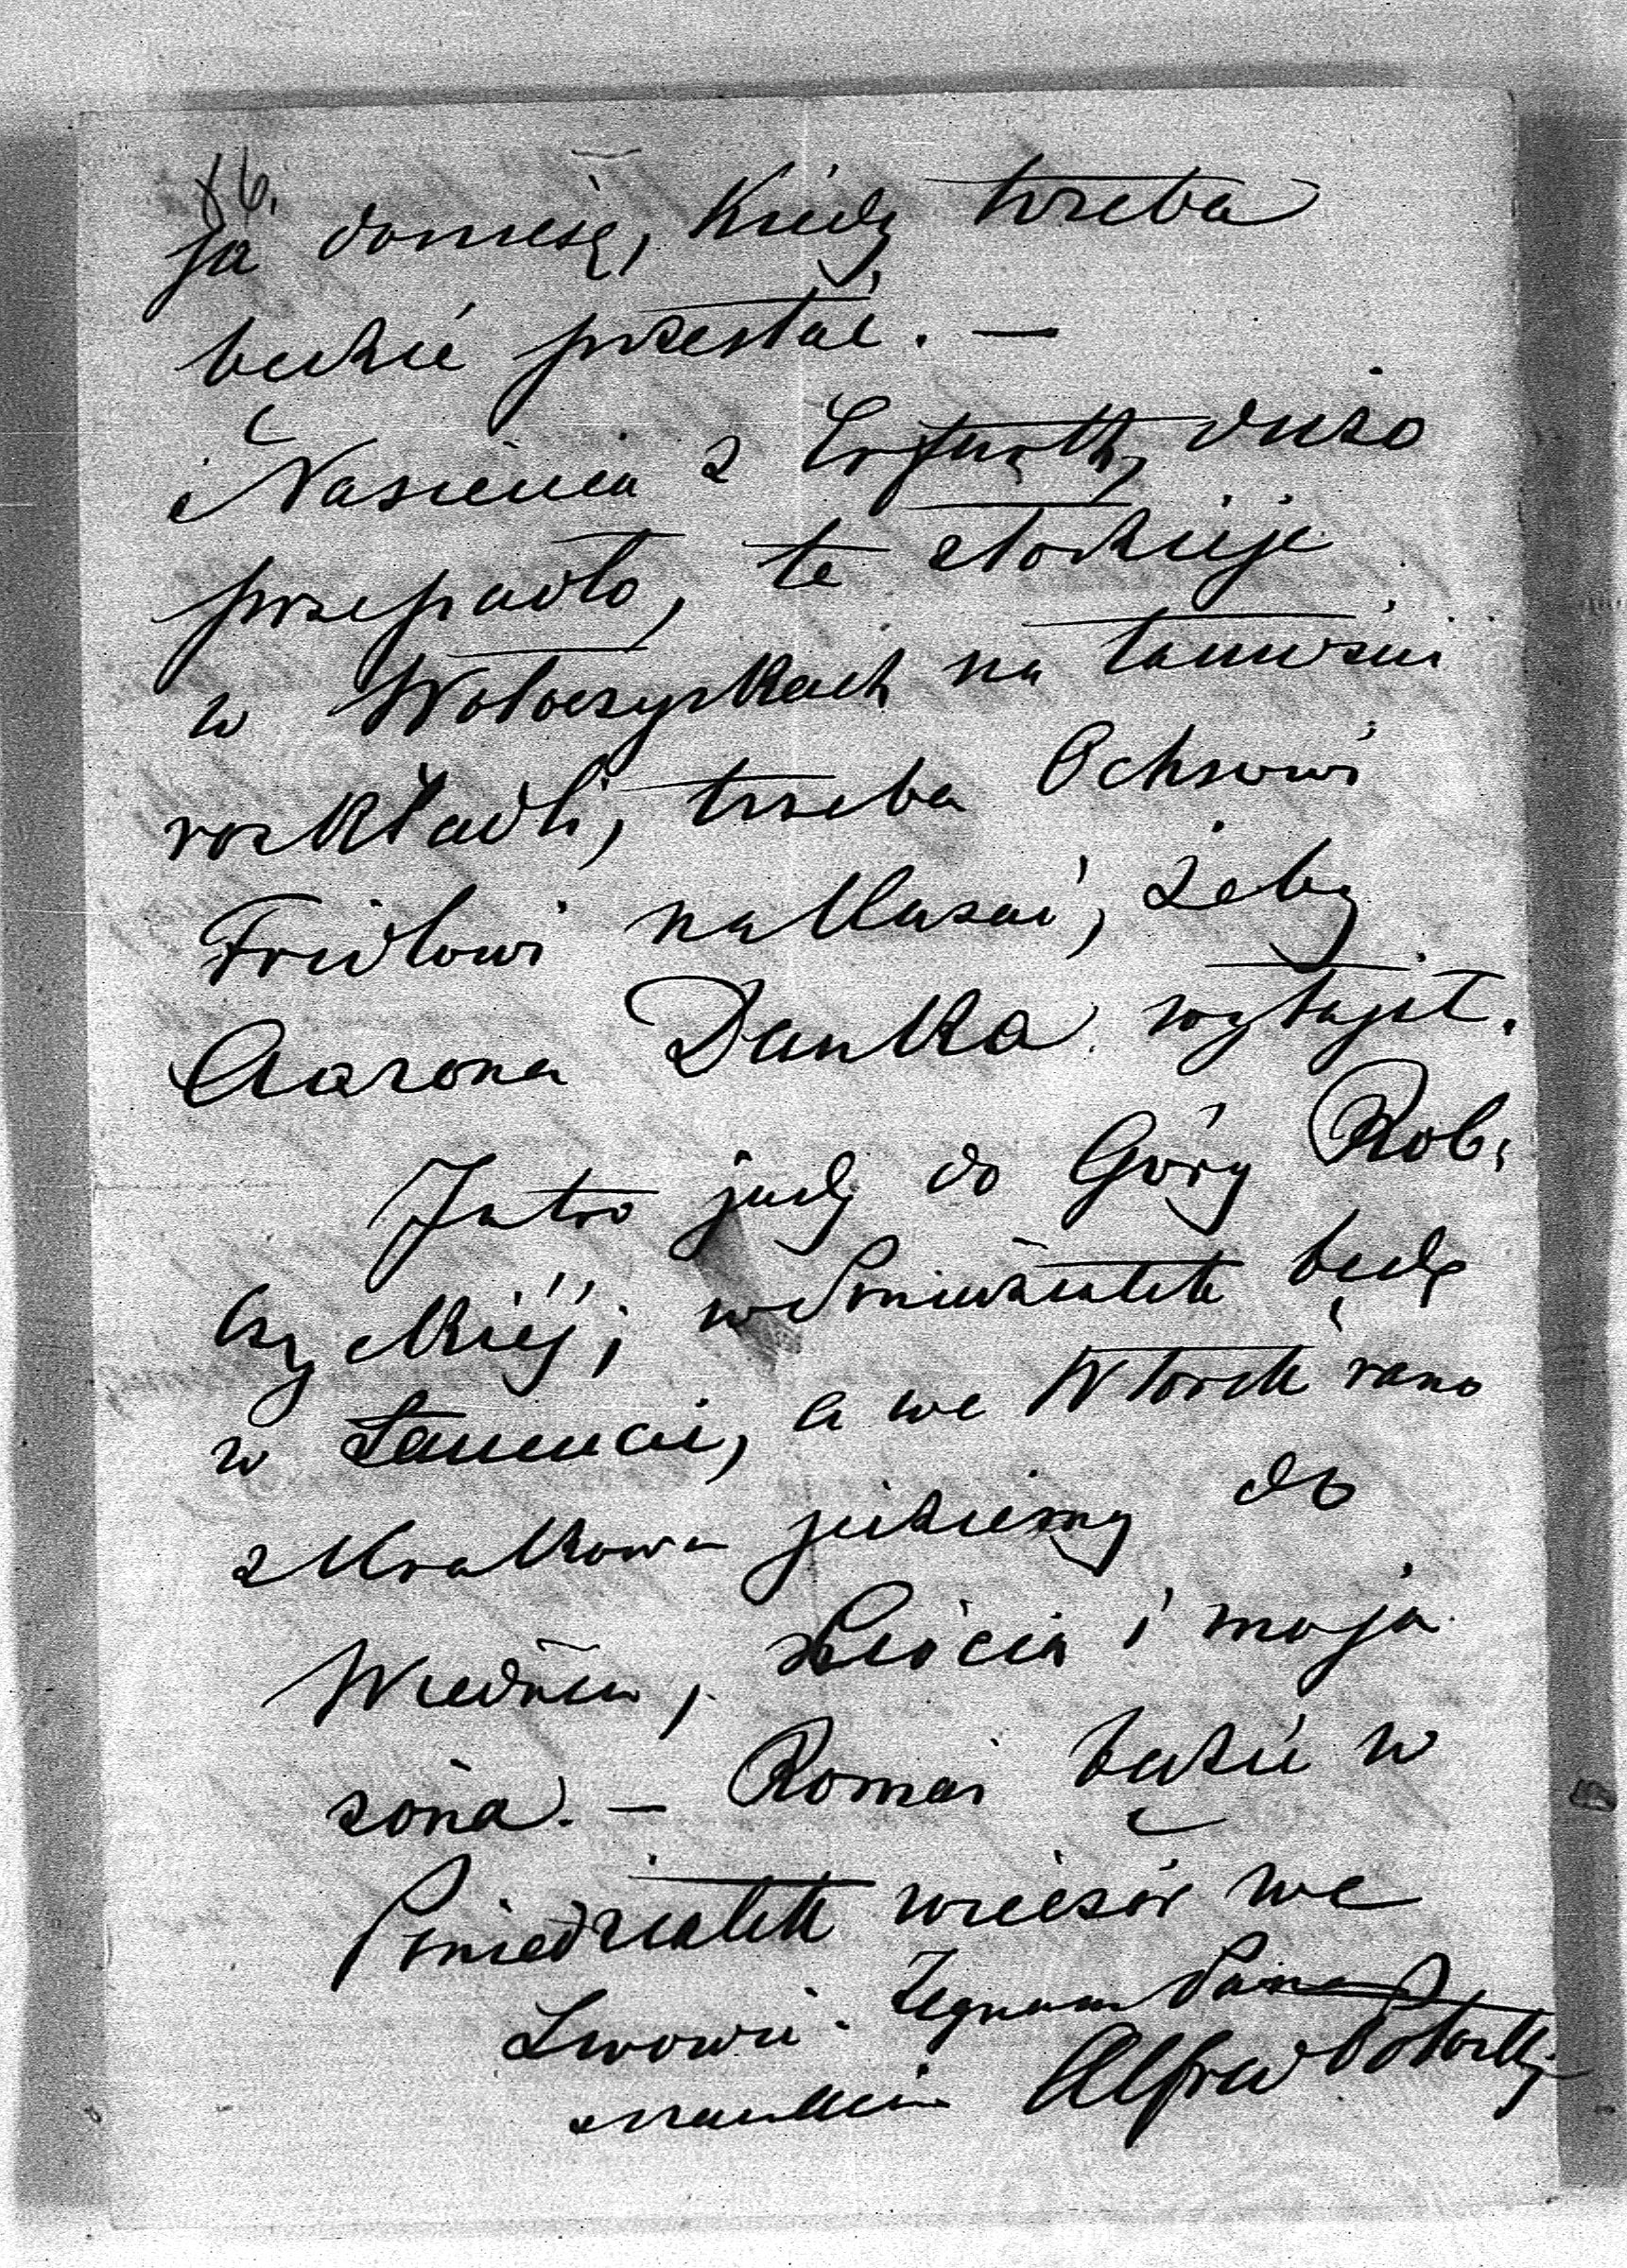 86.
ja doniesę, kiedy trzeba
będzie przestać. —
Nasienia z Erfurtu, dużo
przepadło, te złodzieje
w Wołoczyskach na tamożni
rozkładli, trzeba Ochsowi
Fridlowi nakazać, żeby
Aarona Danka
Jutro jadę do Góry Rob-
czyckiéj; w Poniedziałek będę
w Łańcucie, a we Wtorek rano
z Krakowa jedziemy do
Wiednia, i moja
żona. — Roman będzie w
Poniedziałek wieczór we
Lwowie. Żegnam Pana
Alfred Potocki